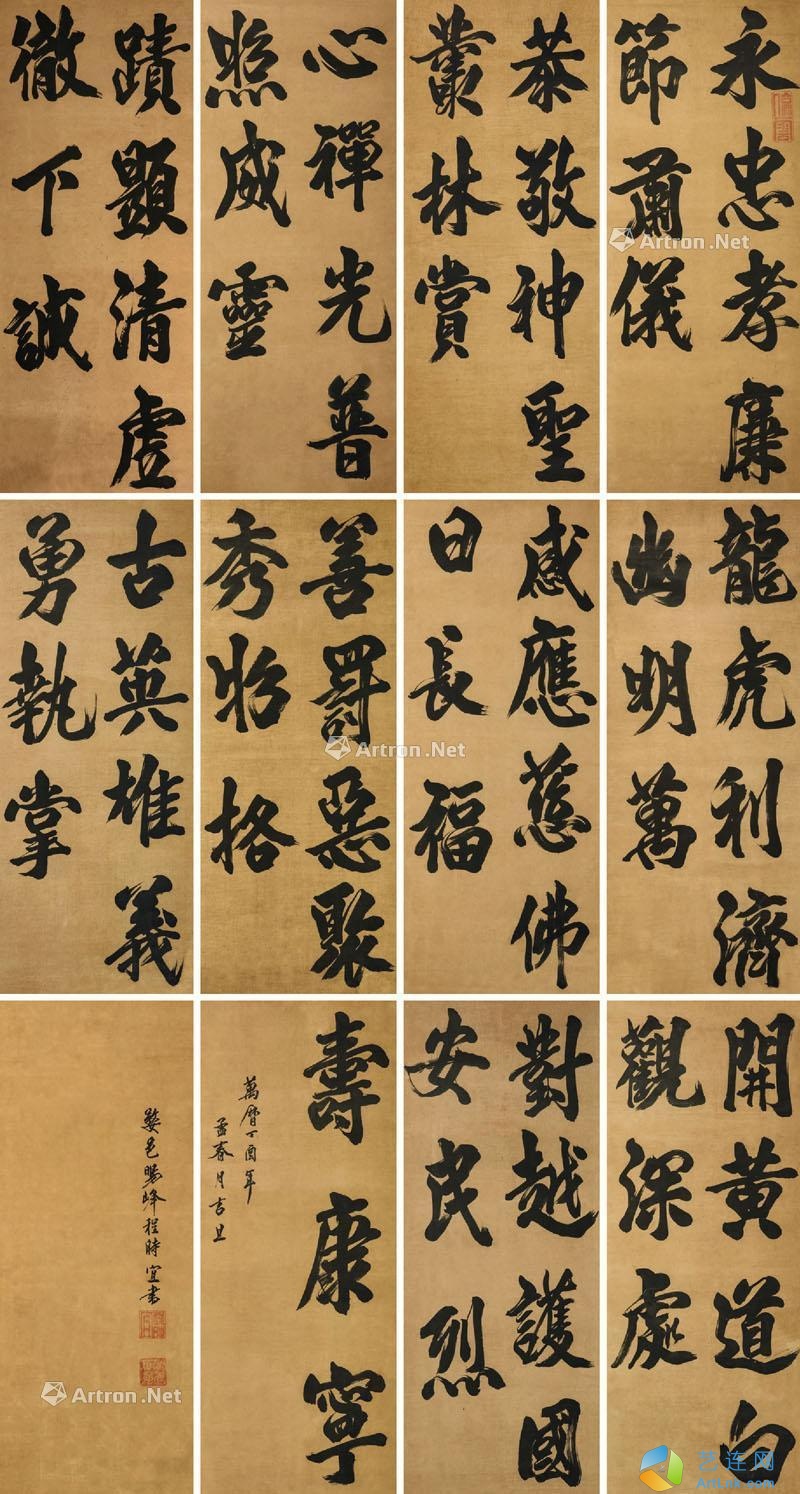 永忠孝廉
節肅儀
恭敬神聖
叢林賞
心禪光普
照威靈
蹟顯清虛
徹下誠
龍虎利濟
幽明萬
感應慈佛
日長福
善罰惡聚
秀昭格
古英雄義
勇執掌
開黄道白
觀深處
對越護國
安民烈
壽康寧
萬曆丁酉年
孟春月吉旦
婺邑暘峰程時宜書
Artron.Net
Artron.Net
Artron.Net
艺连网
ArtLnk.com